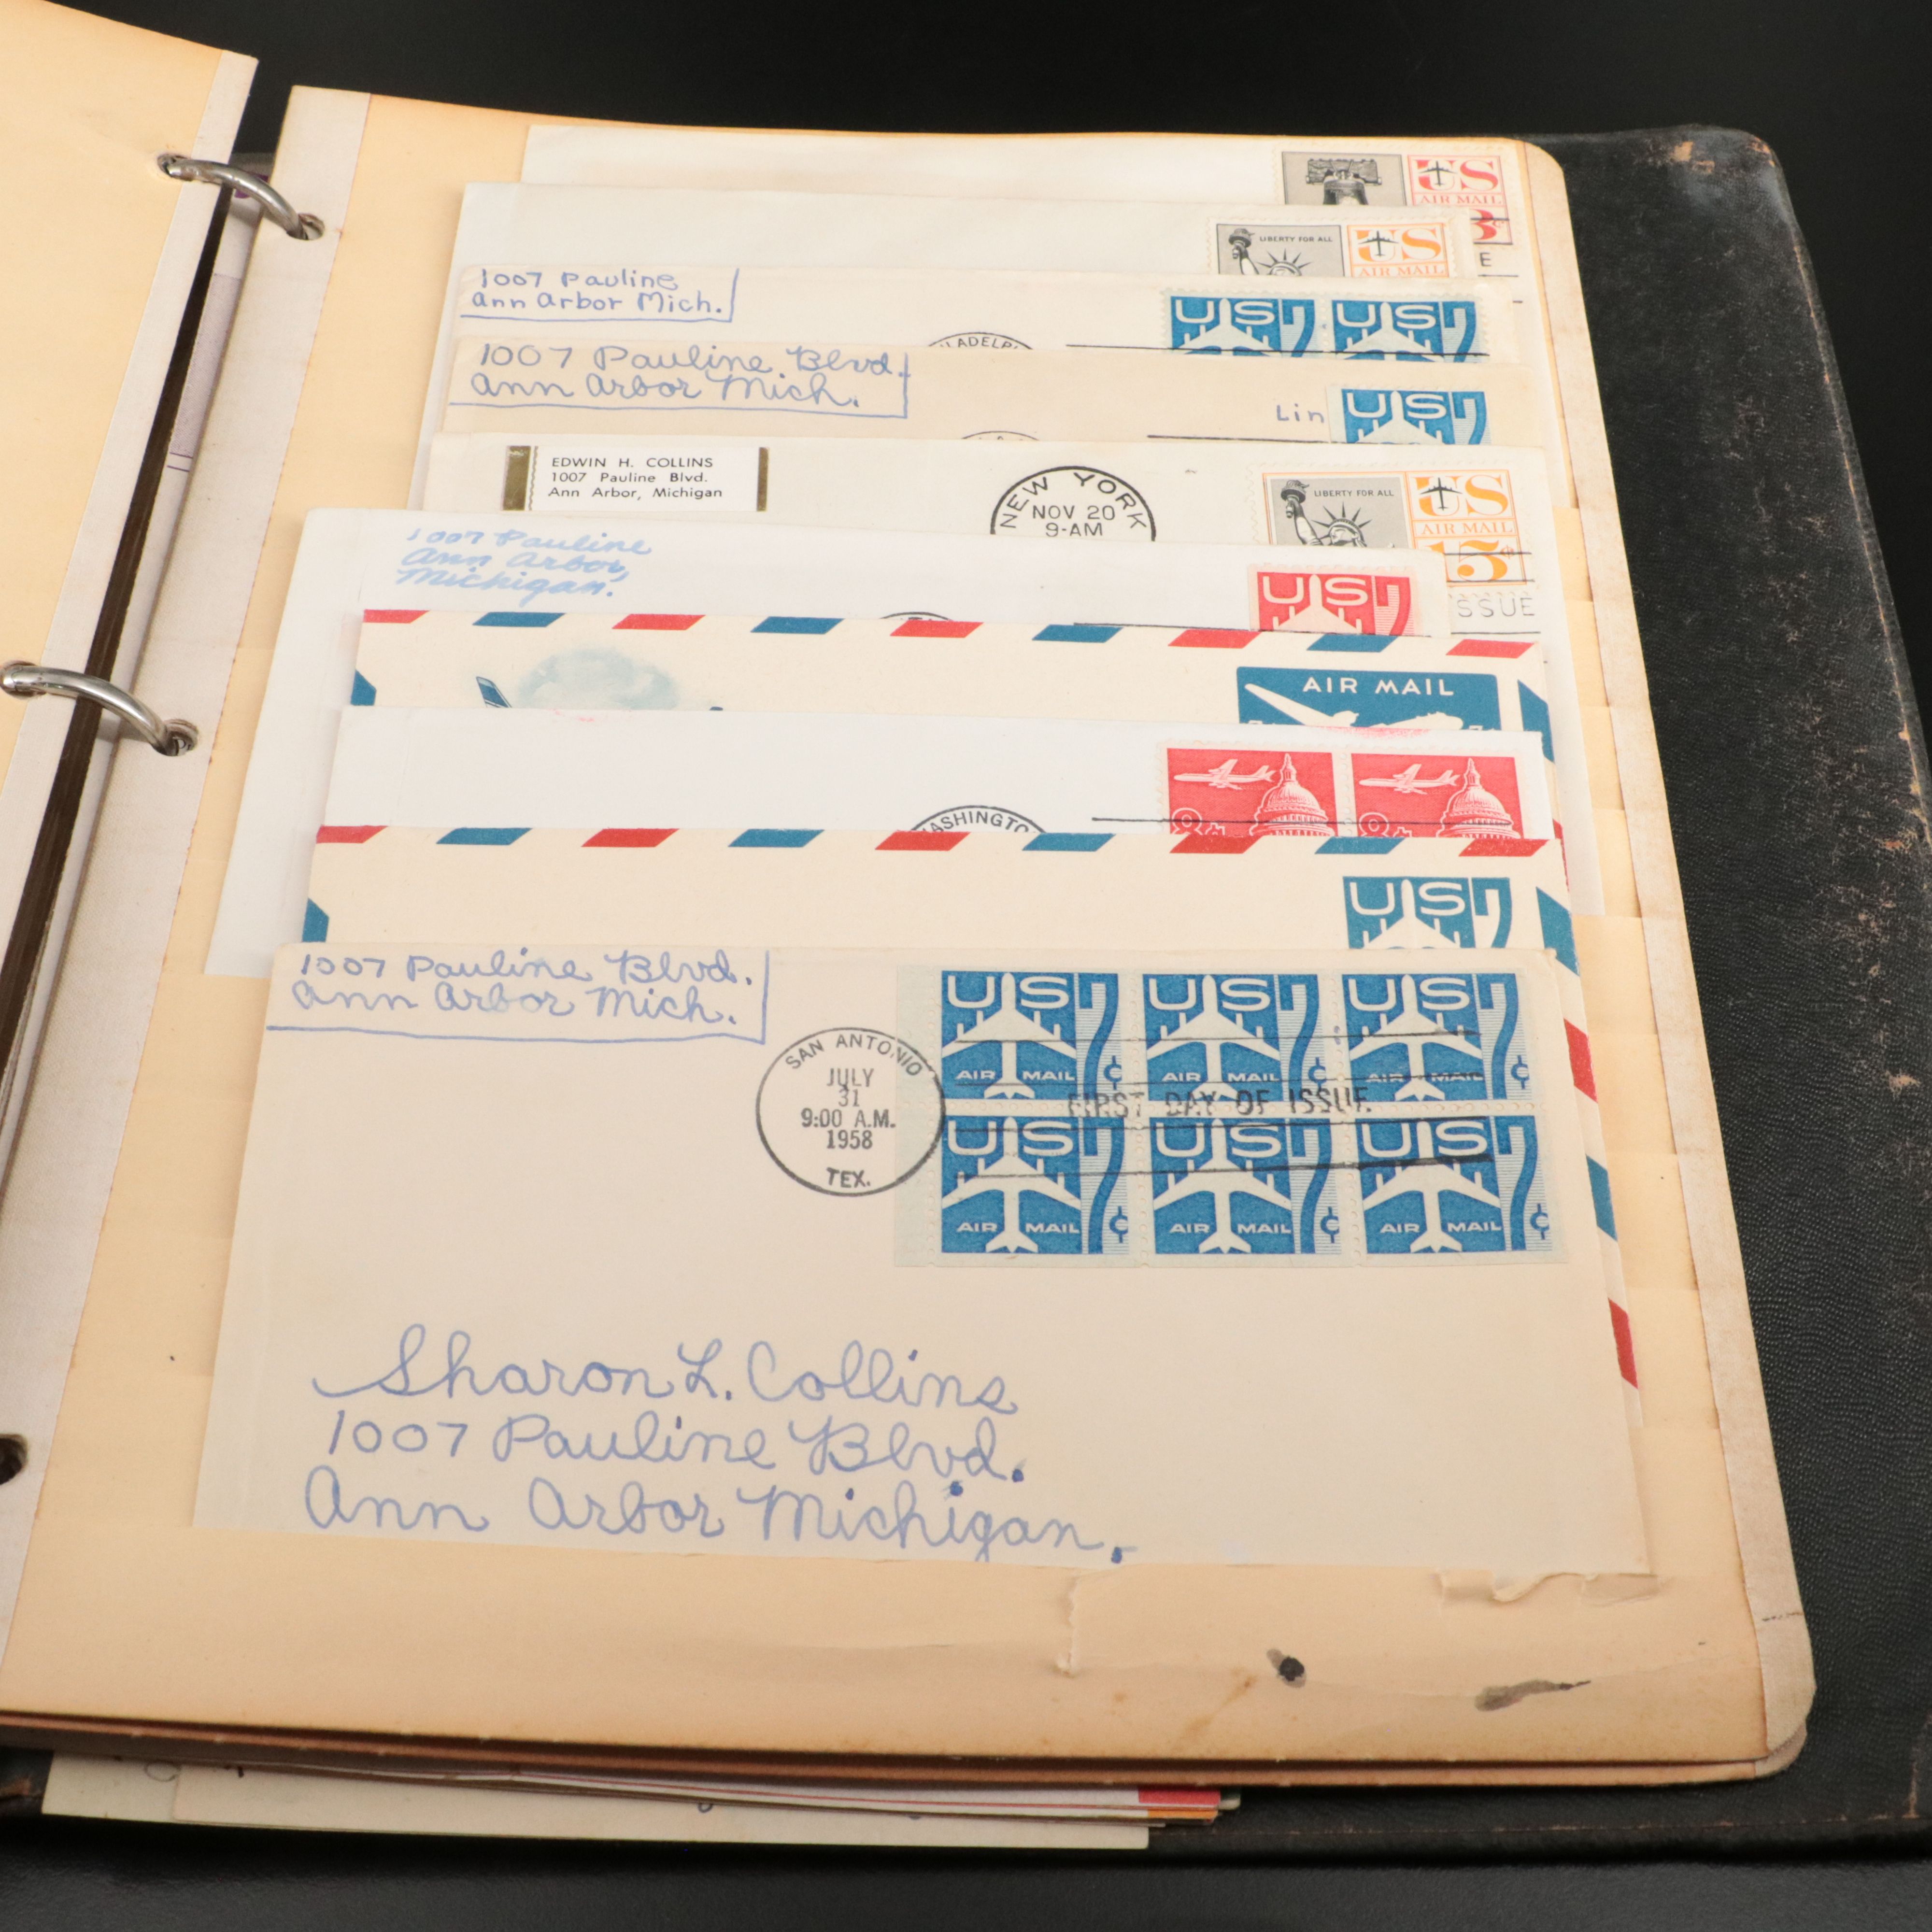 US
AIR MAIL
LIBERTY FOR ALL
US
AIR MAIL
E
1007 Pauline
Ann Arbor Mich.
US7
US7
1007 Pauline Blvd.
Ann Arbor Mich.
Lin
US7
EDWIN H. COLLINS
1007 Pauline Blvd.
Ann Arbor, Michigan
NEW YORK
NOV 20
9-AM
LIBERTY FOR ALL
US
AIR MAIL
15¢
ISSUE
1007 Pauline
Ann Arbor,
Michigan.
US7
AIR MAIL
8¢
8¢
ASHINGTO
US7
1007 Pauline Blvd.
Ann Arbor Mich.
SAN ANTONIO
JULY
31
9:00 A.M.
1958
TEX.
US 7¢
AIR MAIL
US 7¢
AIR MAIL
US 7¢
AIR MAIL
FIRST DAY OF ISSUE
US 7¢
AIR MAIL
US 7¢
AIR MAIL
US 7¢
AIR MAIL
Sharon L. Collins
1007 Pauline Blvd.
Ann Arbor Michigan.